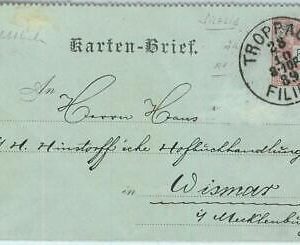 Karten-Brief.
TROPPAU
FILI
An
Herrn Hans
H. Hinstorff'sche Hofbuchhandlung
in
Wismar
i/ Mecklenburg